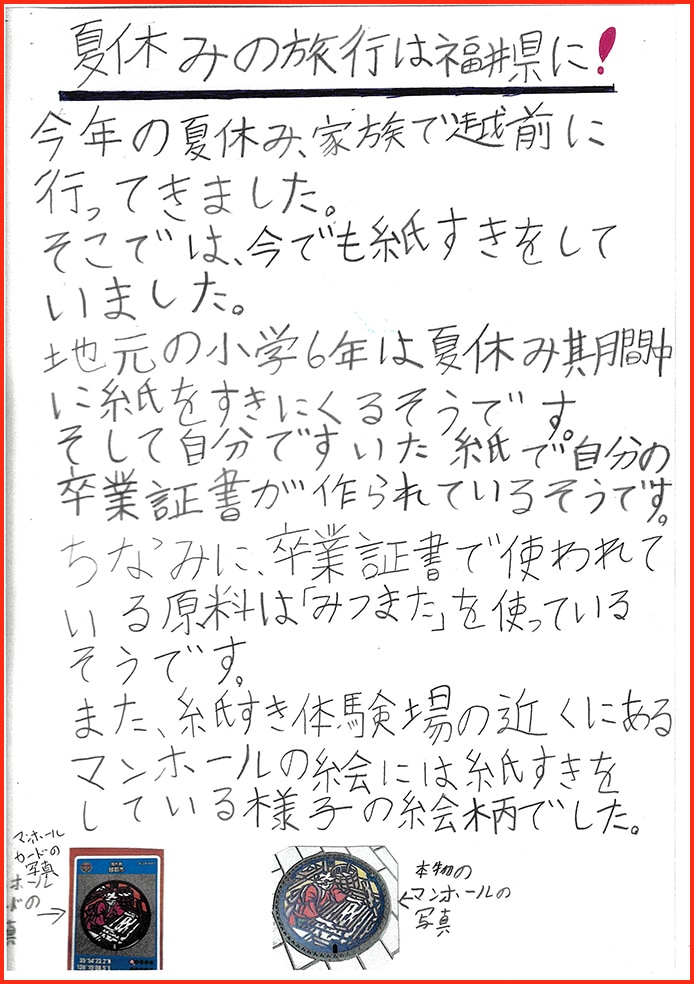 夏休みの旅行は福井県に!
今年の夏休み、家族で越前に
行ってきました。
そこでは、今でも紙すきをして
いました。
地元の小学6年は夏休み期間中
に紙をすきにくるそうです。
そして自分ですいた紙で自分の
卒業証書が作られているそうです。
ちなみに、卒業証書で使われて
いる原料は「みつまた」を使っている
そうです。
また、紙すき体験場の近くにある
マンホールの絵には紙すきを
している様子の絵柄でした。
マンホール
カードの
写真
ホール
ドの
真
→
本物の
←マンホールの
写真